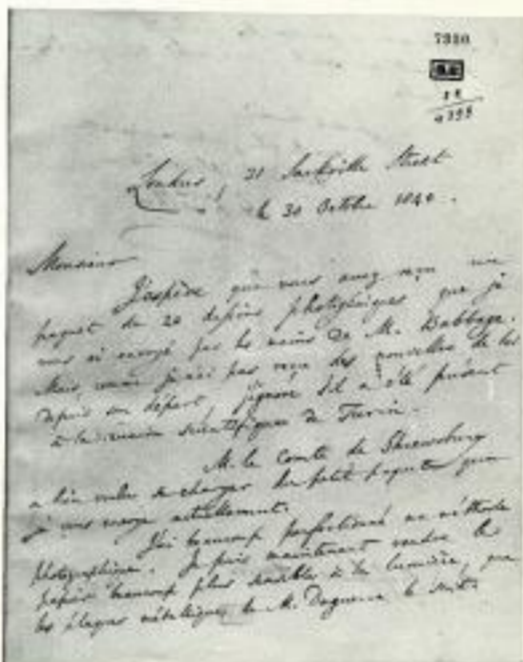 7310
18
Londres, 31 Sackville Street
le 30 Octobre 1840.
Monsieur
J'espère que vous avez reçu un
paquet de 20 dessins photogéniques que je
vous ai envoyé par les mains de M. Babbage.
Mais, comme je n'ai pas reçu des nouvelles de lui
depuis son départ j'ignore s'il a été présent
à la réunion scientifique de Turin.
M. le Comte de Shrewsbury
a bien voulu se charger du petit paquet que
je vous envoye actuellement.
J'ai beaucoup perfectionné ma méthode
photographique. Je puis maintenant rendre le
papier beaucoup plus sensible à la lumière, que
les plaques métalliques de M. Daguerre le sont.